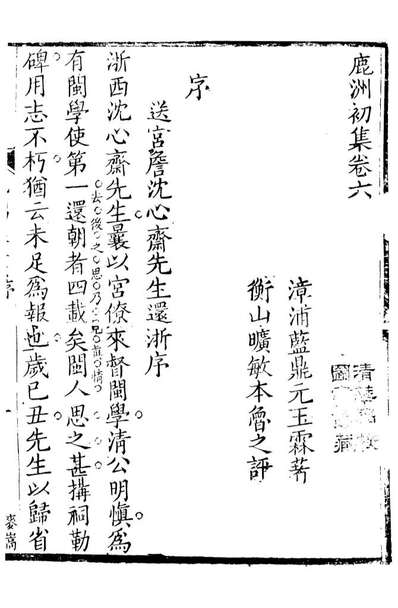 鹿洲初集卷六
漳浦藍鼎元玉霖著
衡山曠敏本魯之評
序
送宮詹沈心齋先生還浙序
浙西沈心齋先生曩以宮僚來督閩學清公明慎為
有閩學使第一還朝者四載矣閩人思之甚搆祠勒
去後之思乃見眞情
碑用志不朽猶云未足為報也歲巳丑先生以歸省